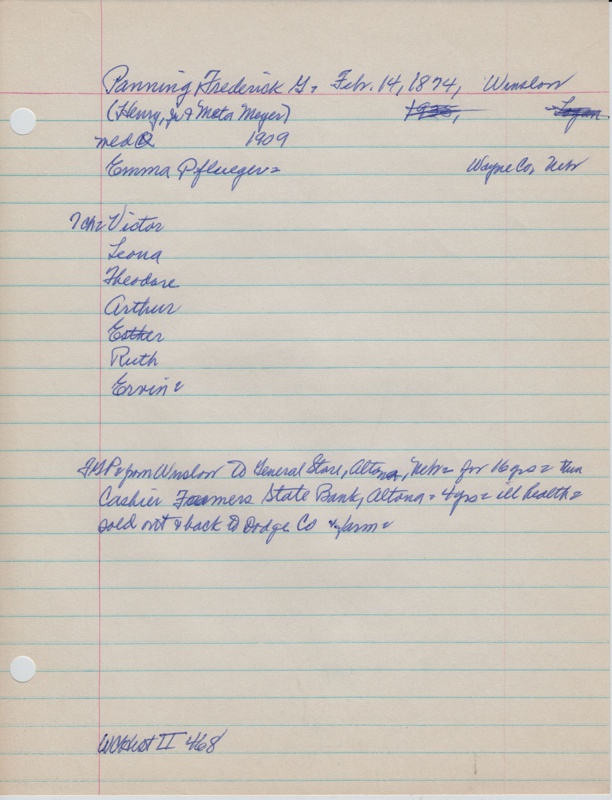 Panning Frederick G= Feb. 14, 1874, Winslow
(Henry, Jr & Meta Meyer) 1935, Logan
med 1909
Emma Pflueger= Wayne Co, Nebr
7 ch= Victor
Leona
Theodore
Arthur
Esther
Ruth
Ervin=
FGP= from Winslow to General Store, Altona, Nebr= for 16 yrs= then
Cashier Farmers State Bank, Altona= 4 yrs= ill health=
sold out & back to Dodge Co & farm=
II 468